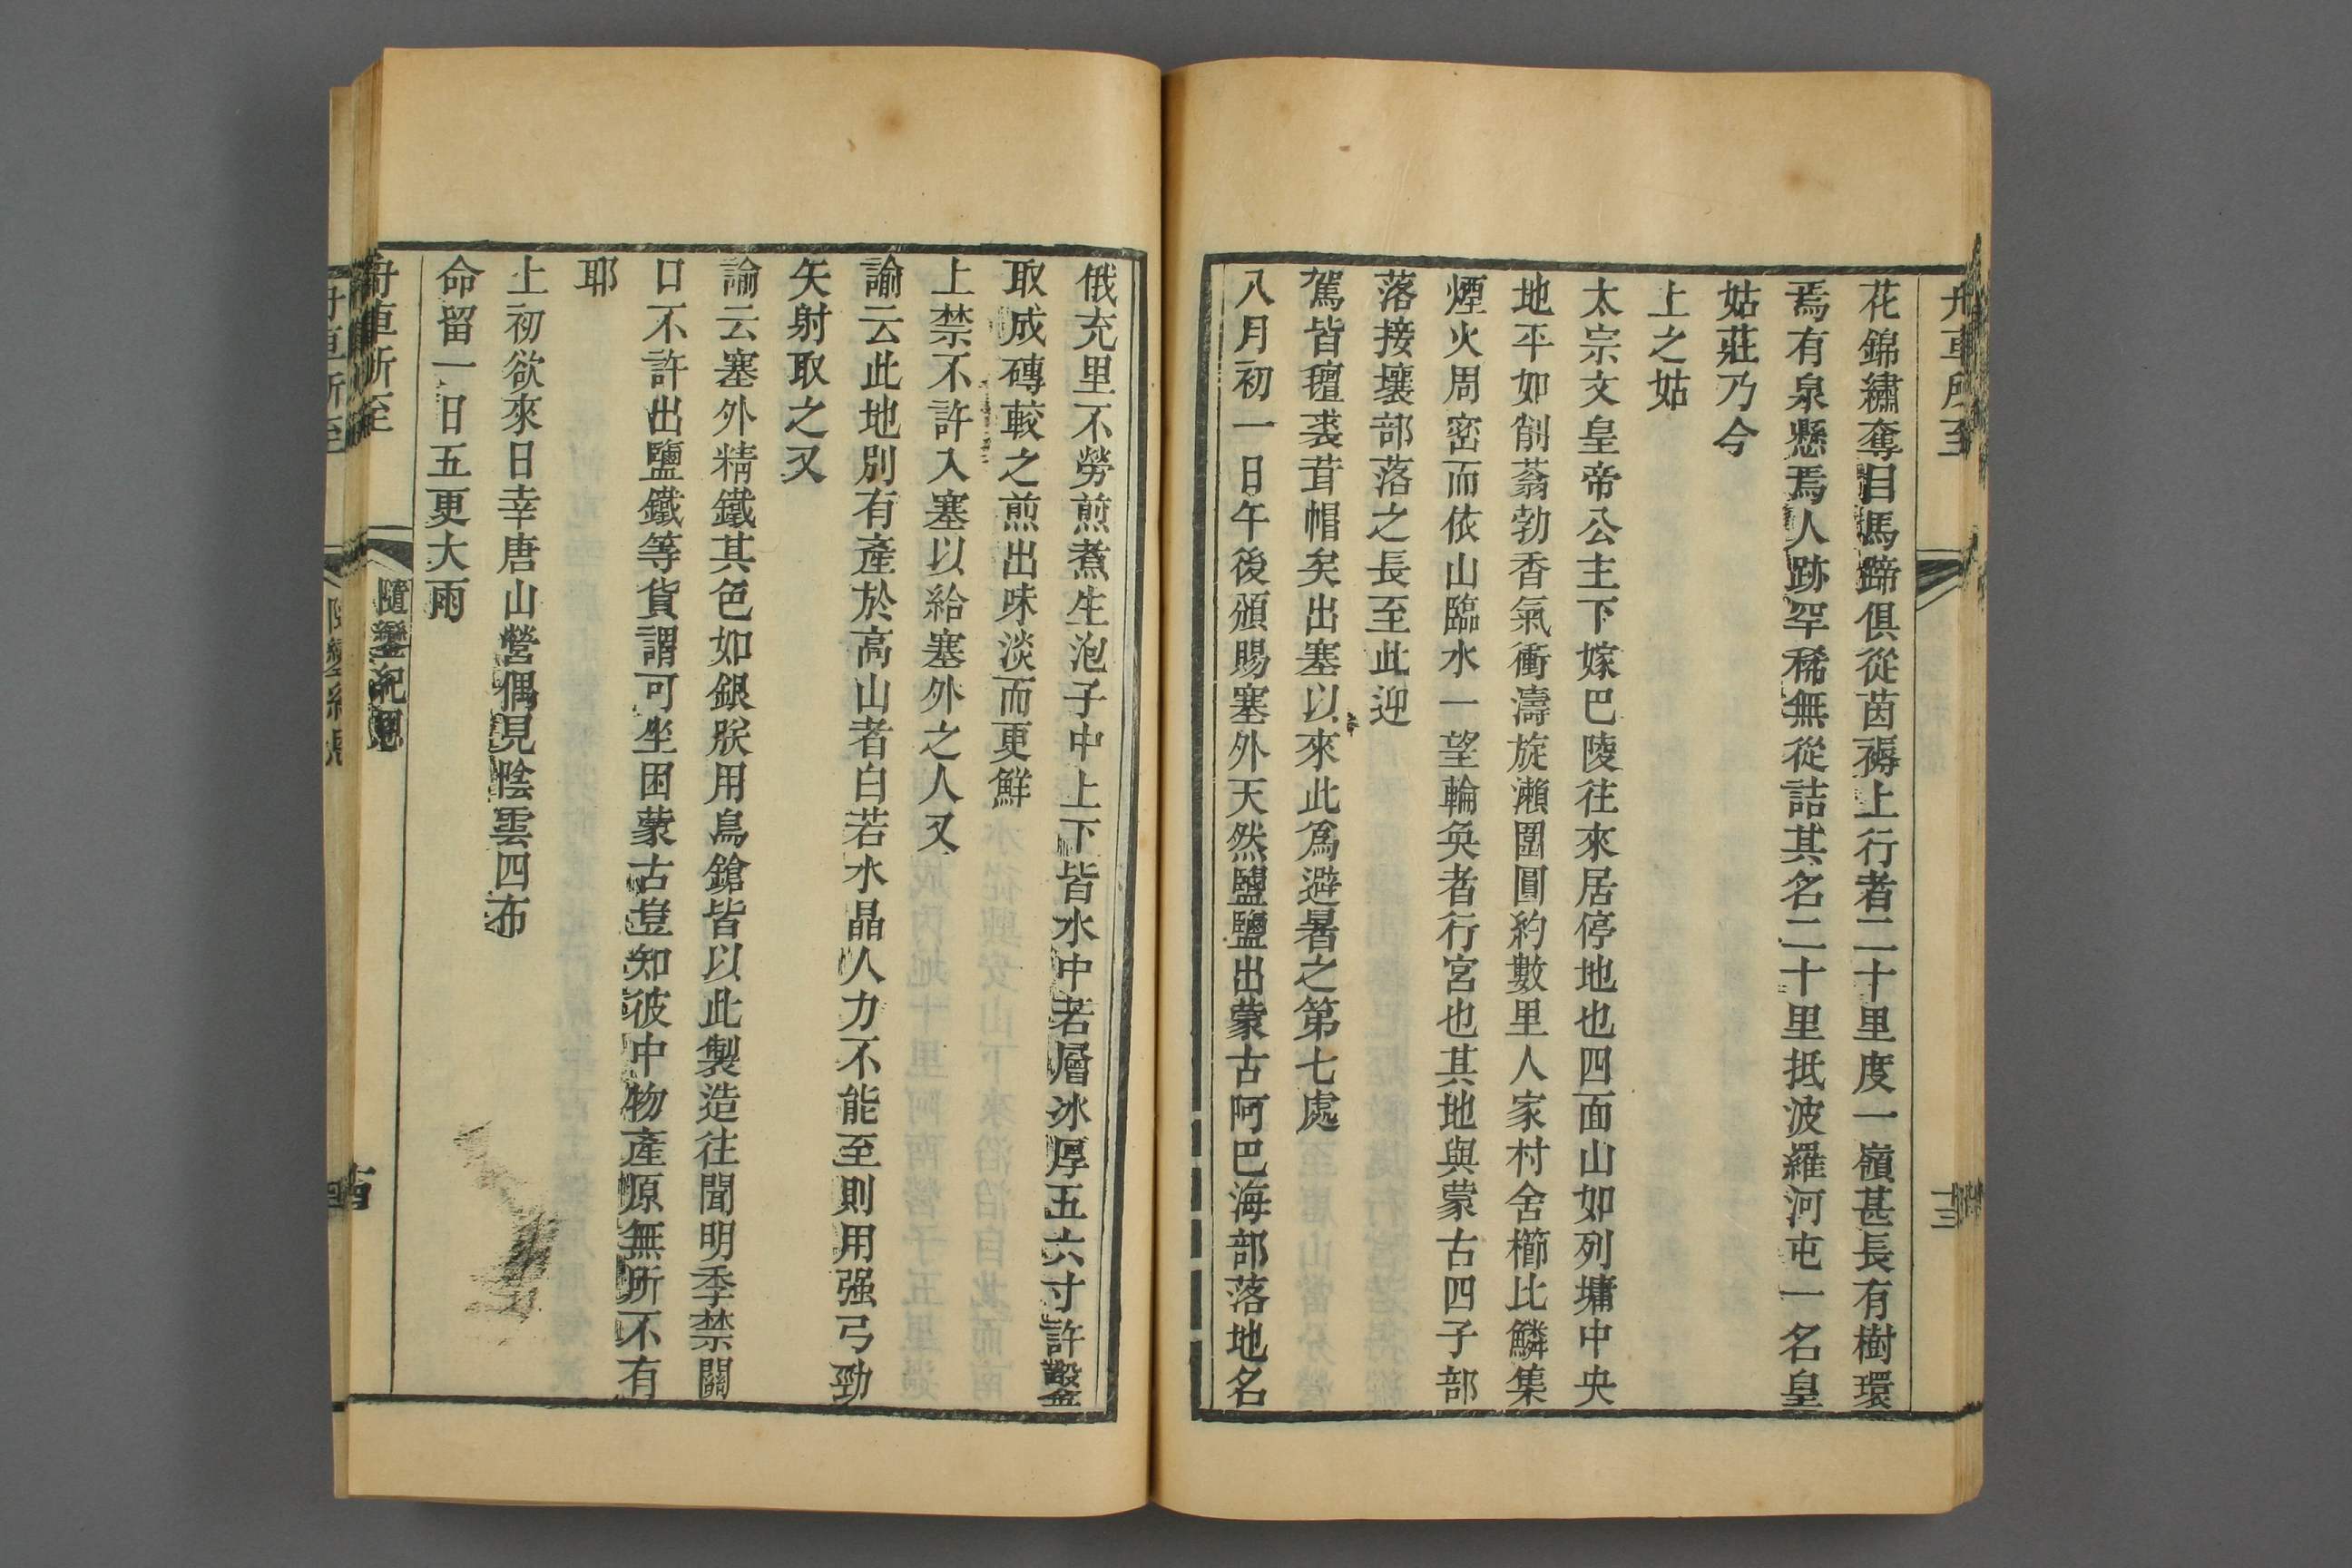 舟車所至
十三
花錦繡奪目馬蹄俱從茵褥上行者二十里度一嶺甚長有樹環
焉有泉懸焉人跡罕稀無從詰其名二十里抵波羅河屯一名皇
姑莊乃今
上之姑
太宗文皇帝公主下嫁巴陵往來居停地也四面山如列墉中央
地平如削蓊勃香氣衝濤旋瀨圍圓約數里人家村舍櫛比鱗集
煙火周密而依山臨水一望輪奐者行宮也其地與蒙古四子部
落接壤部落之長至此迎
駕皆氊裘茸帽矣出塞以來此爲避暑之第七處
八月初一日午後頒賜塞外天然鹽鹽出蒙古阿巴海部落地名
俄充里不勞煎煮生泡子中上下皆水中若層冰厚五六寸許鑿
取成磚較之煎出味淡而更鮮
上禁不許入塞以給塞外之人又
諭云此地別有產於高山者白若水晶人力不能至則用强弓勁
矢射取之又
諭云塞外精鐵其色如銀朕用鳥鎗皆以此製造往聞明季禁關
口不許出鹽鐵等貨謂可坐困蒙古豈知彼中物產原無所不有
耶
上初欲來日幸唐山營偶見陰雲四布
命留一日五更大雨
舟車所至
隨鑾紀恩
十四